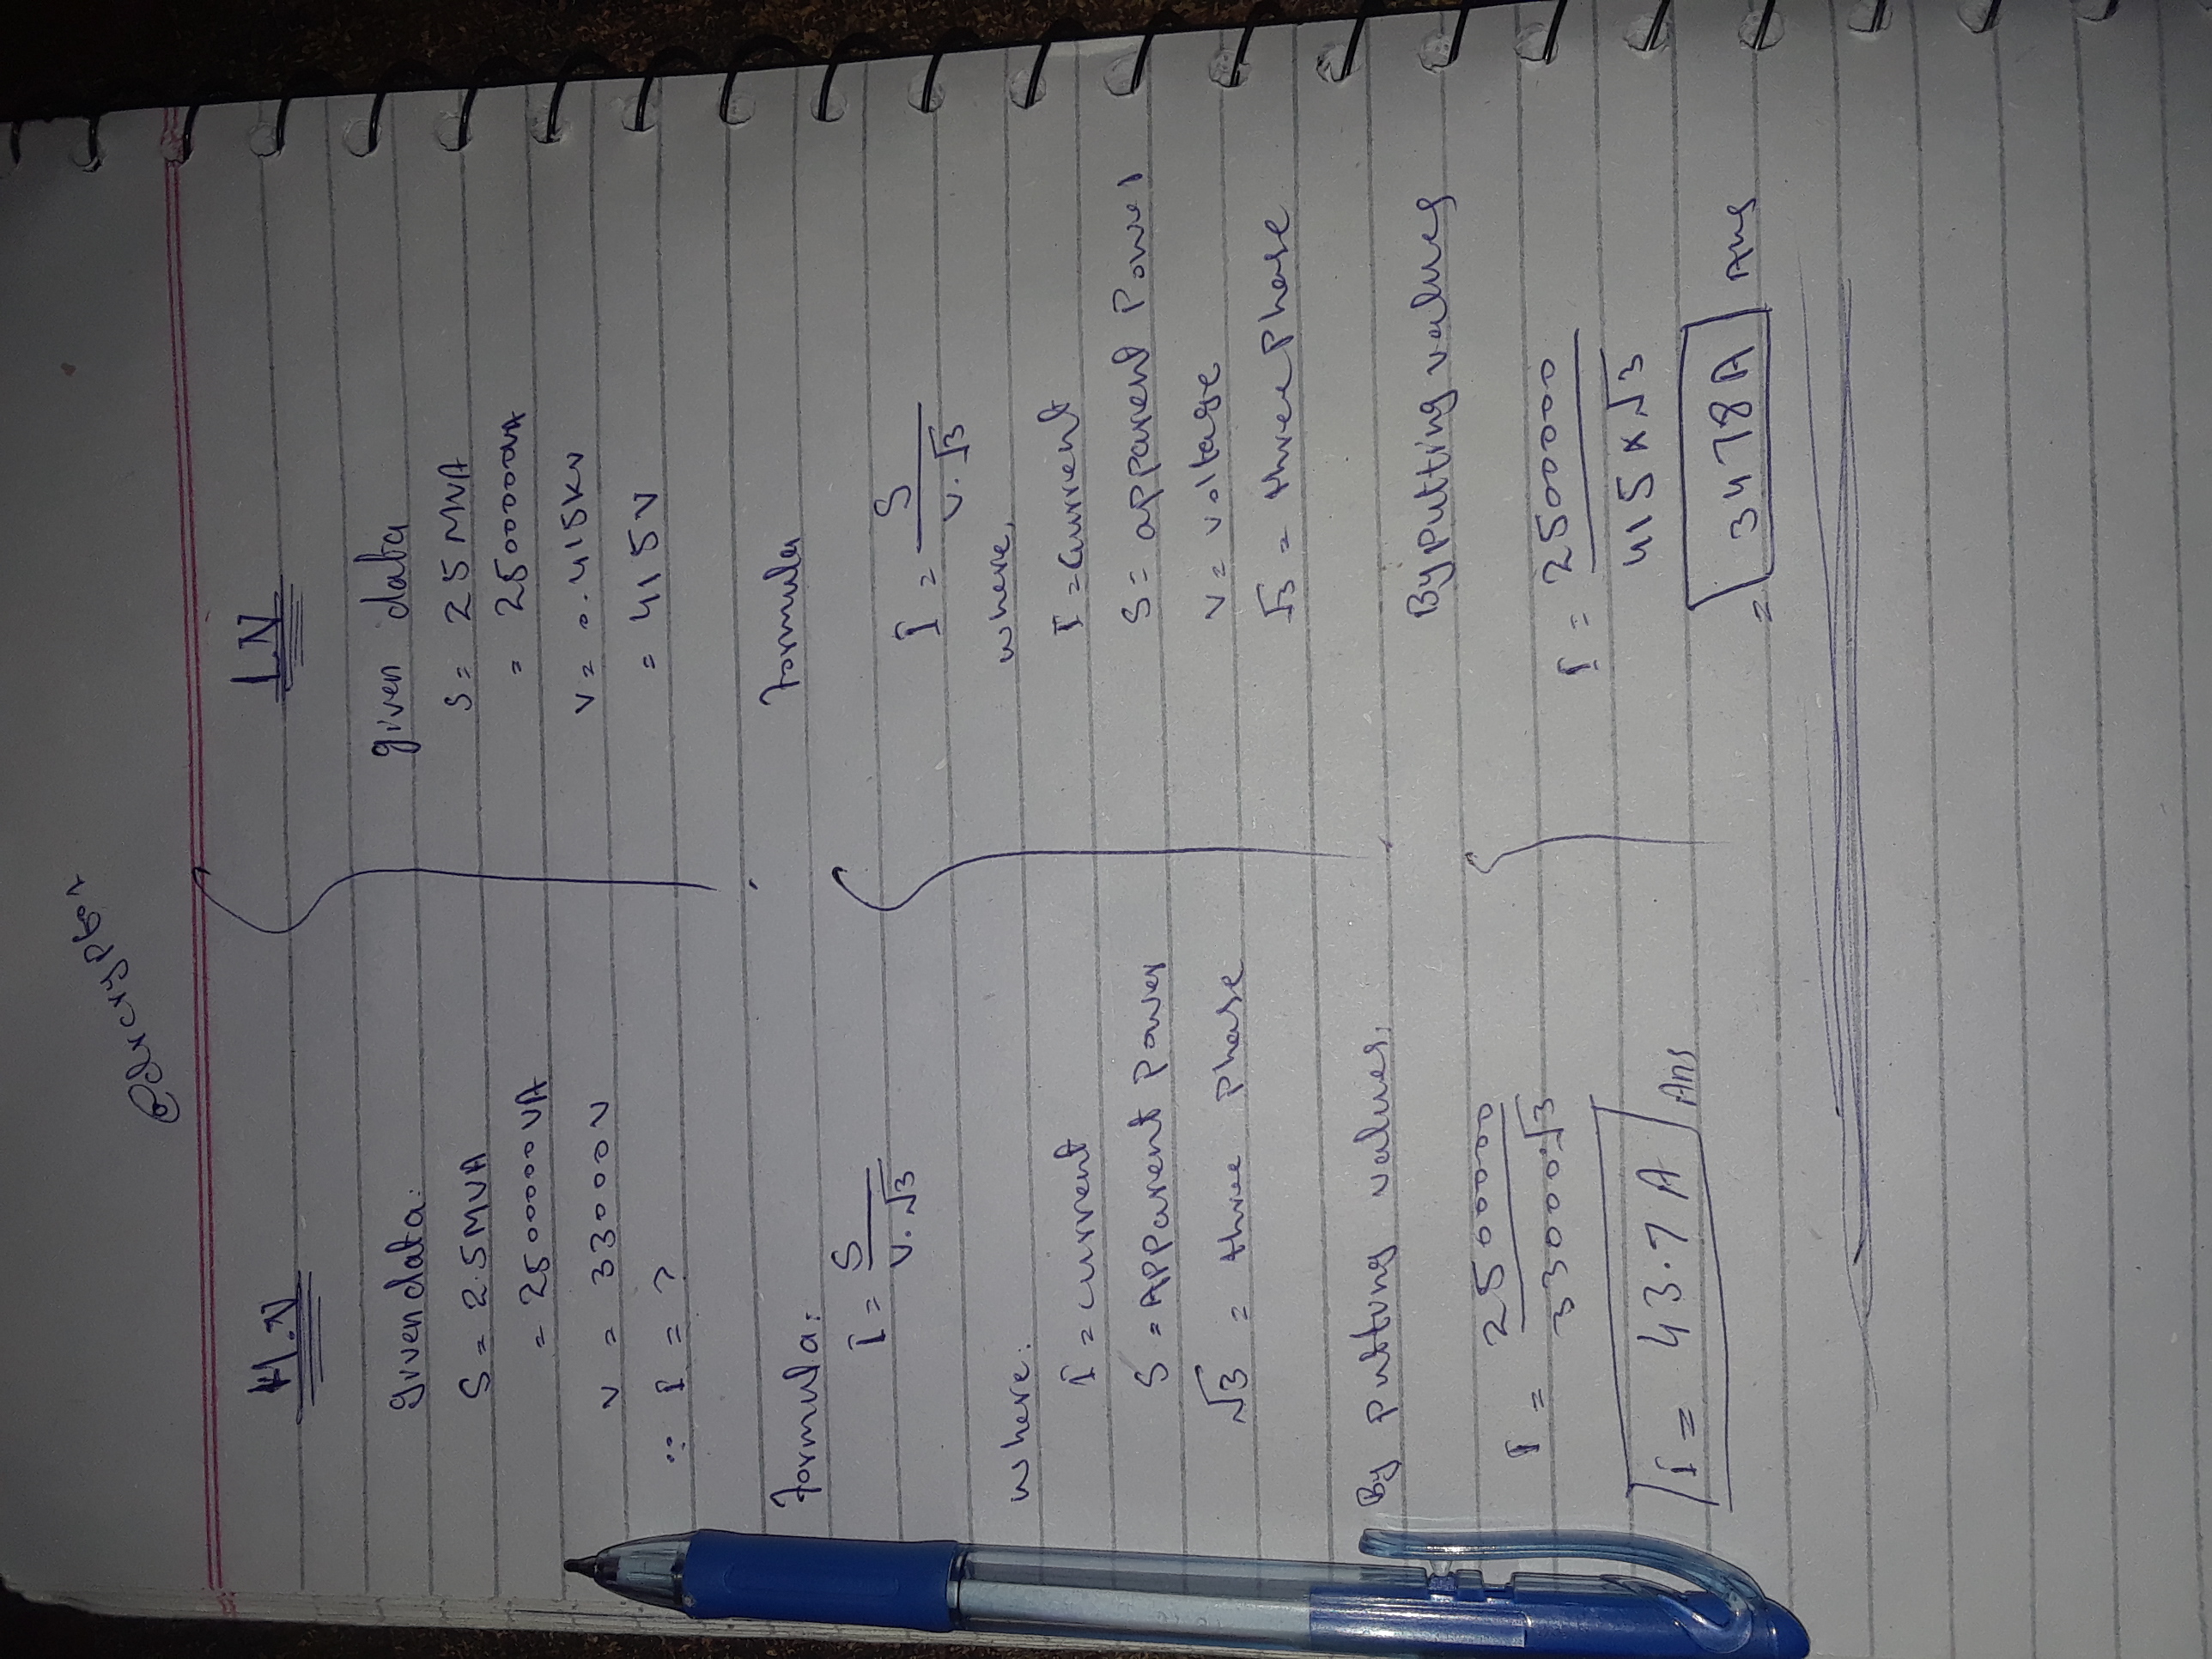 @dxcrypt0r
H.V
given data:
S = 2.5MVA
= 2500000 VA
V = 33000 V
∴ I = ?
formula:
I = S / V.√3
where:
I = current
S = APParent Power
√3 = three phase
By putting values,
I = 2500000 / 33000.√3
I = 43.7 A Ans
L.V
given data
S = 2.5 MVA
= 2500000VA
V = 0.415KV
= 415V
formula
I = S / V.√3
where,
I = current
S = apparent Power
V = voltage
√3 = three phase
By putting values
I = 2500000 / 415 x √3
= 3478 A Ans